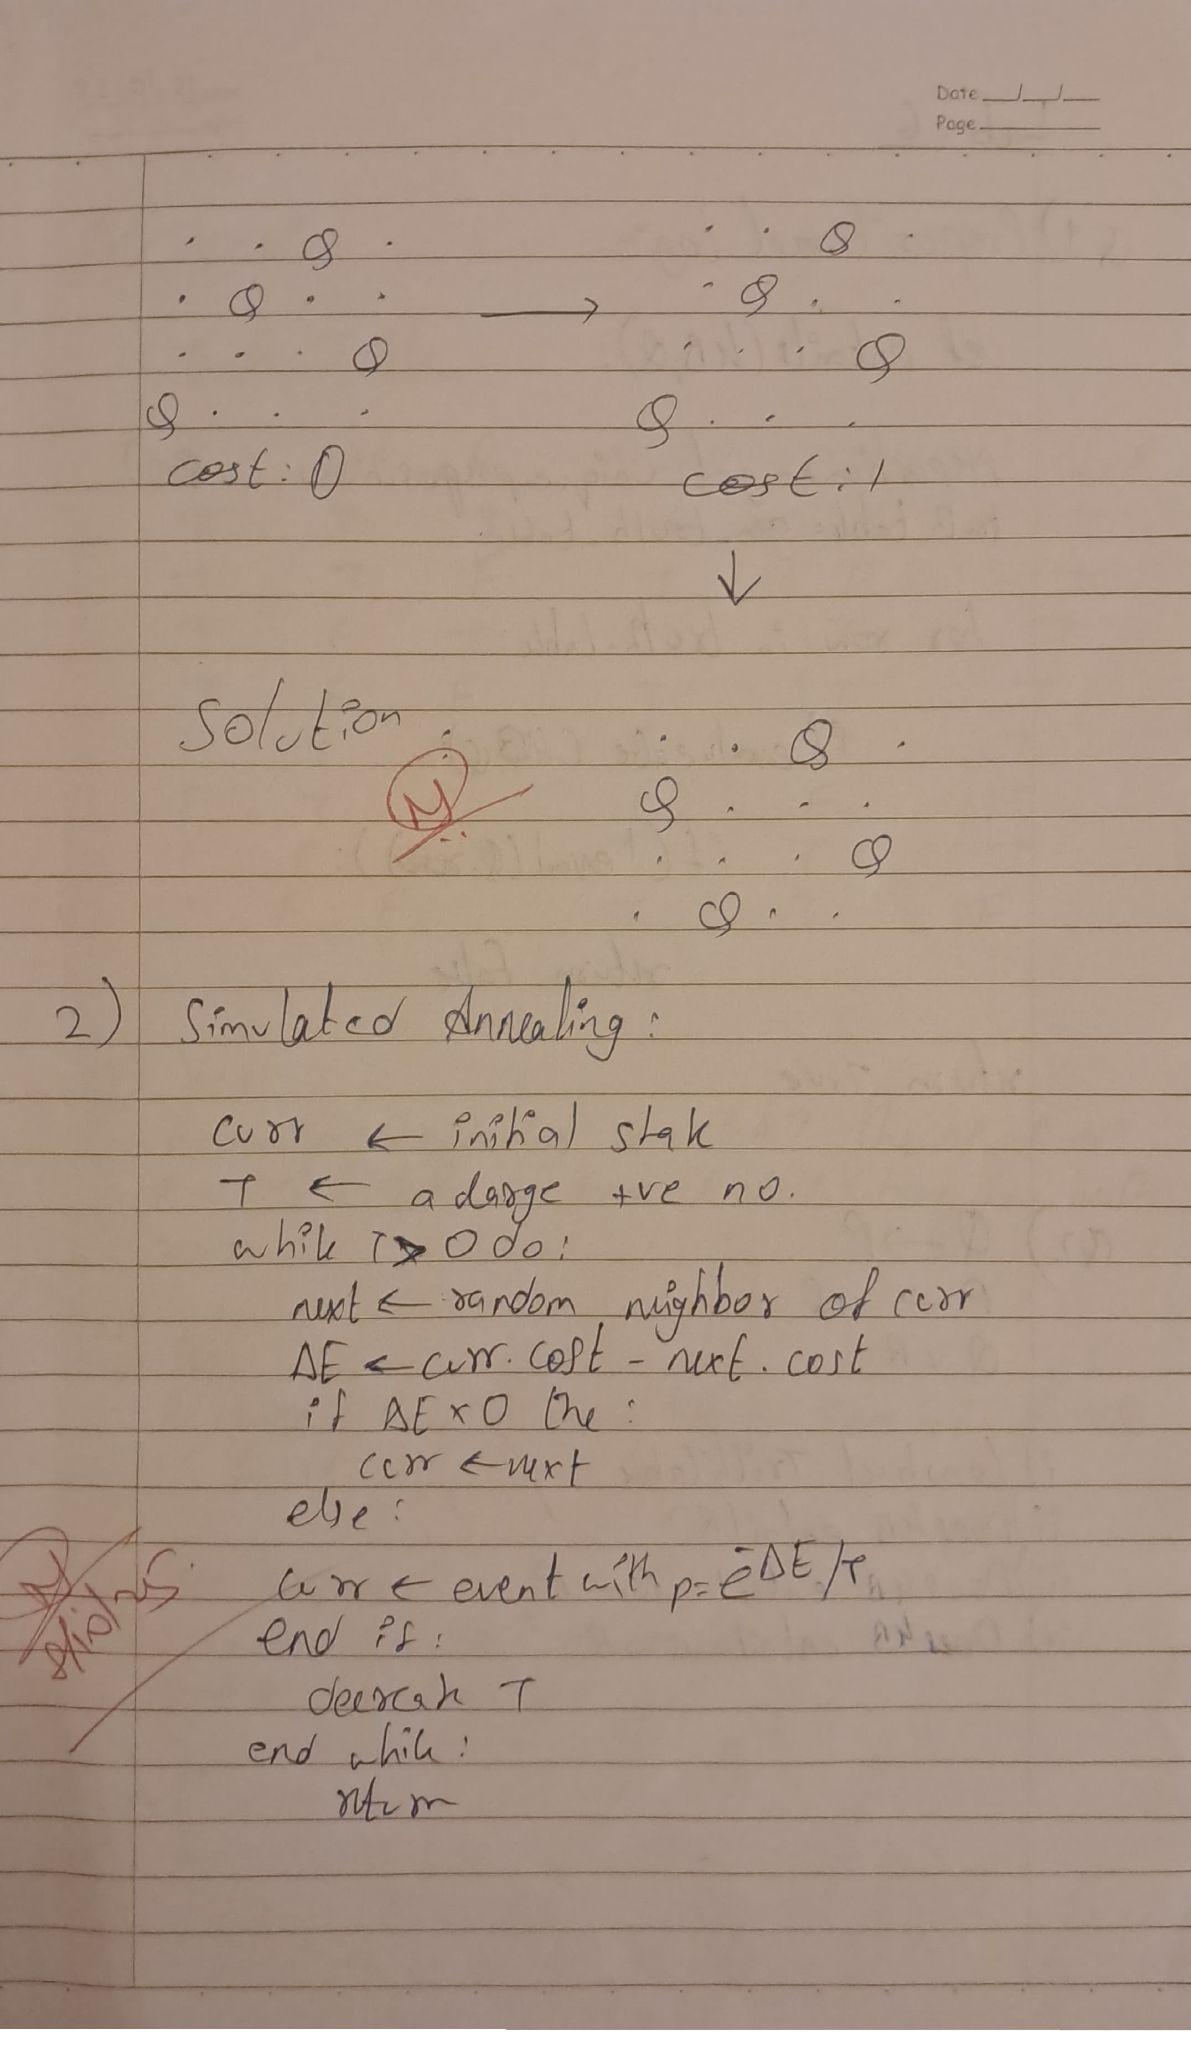 Date
Page
. . Q .        . . Q .
. Q . .  →  . Q . .
. . . Q        . . . Q
Q . . .        Q . . .
cost: 0        cost: 1
↓
Solution :        . . Q .
Q . . .
. . . Q
. Q . .
2) Simulated Annealing:
curr ← initial state
T ← a large +ve no.
while T > 0 do:
next ← random neighbor of curr
ΔE ← curr.cost - next.cost
if ΔE > 0 the:
curr ← next
else:
curr ← event with p= e^-ΔE/T
end if:
decrease T
end while:
return